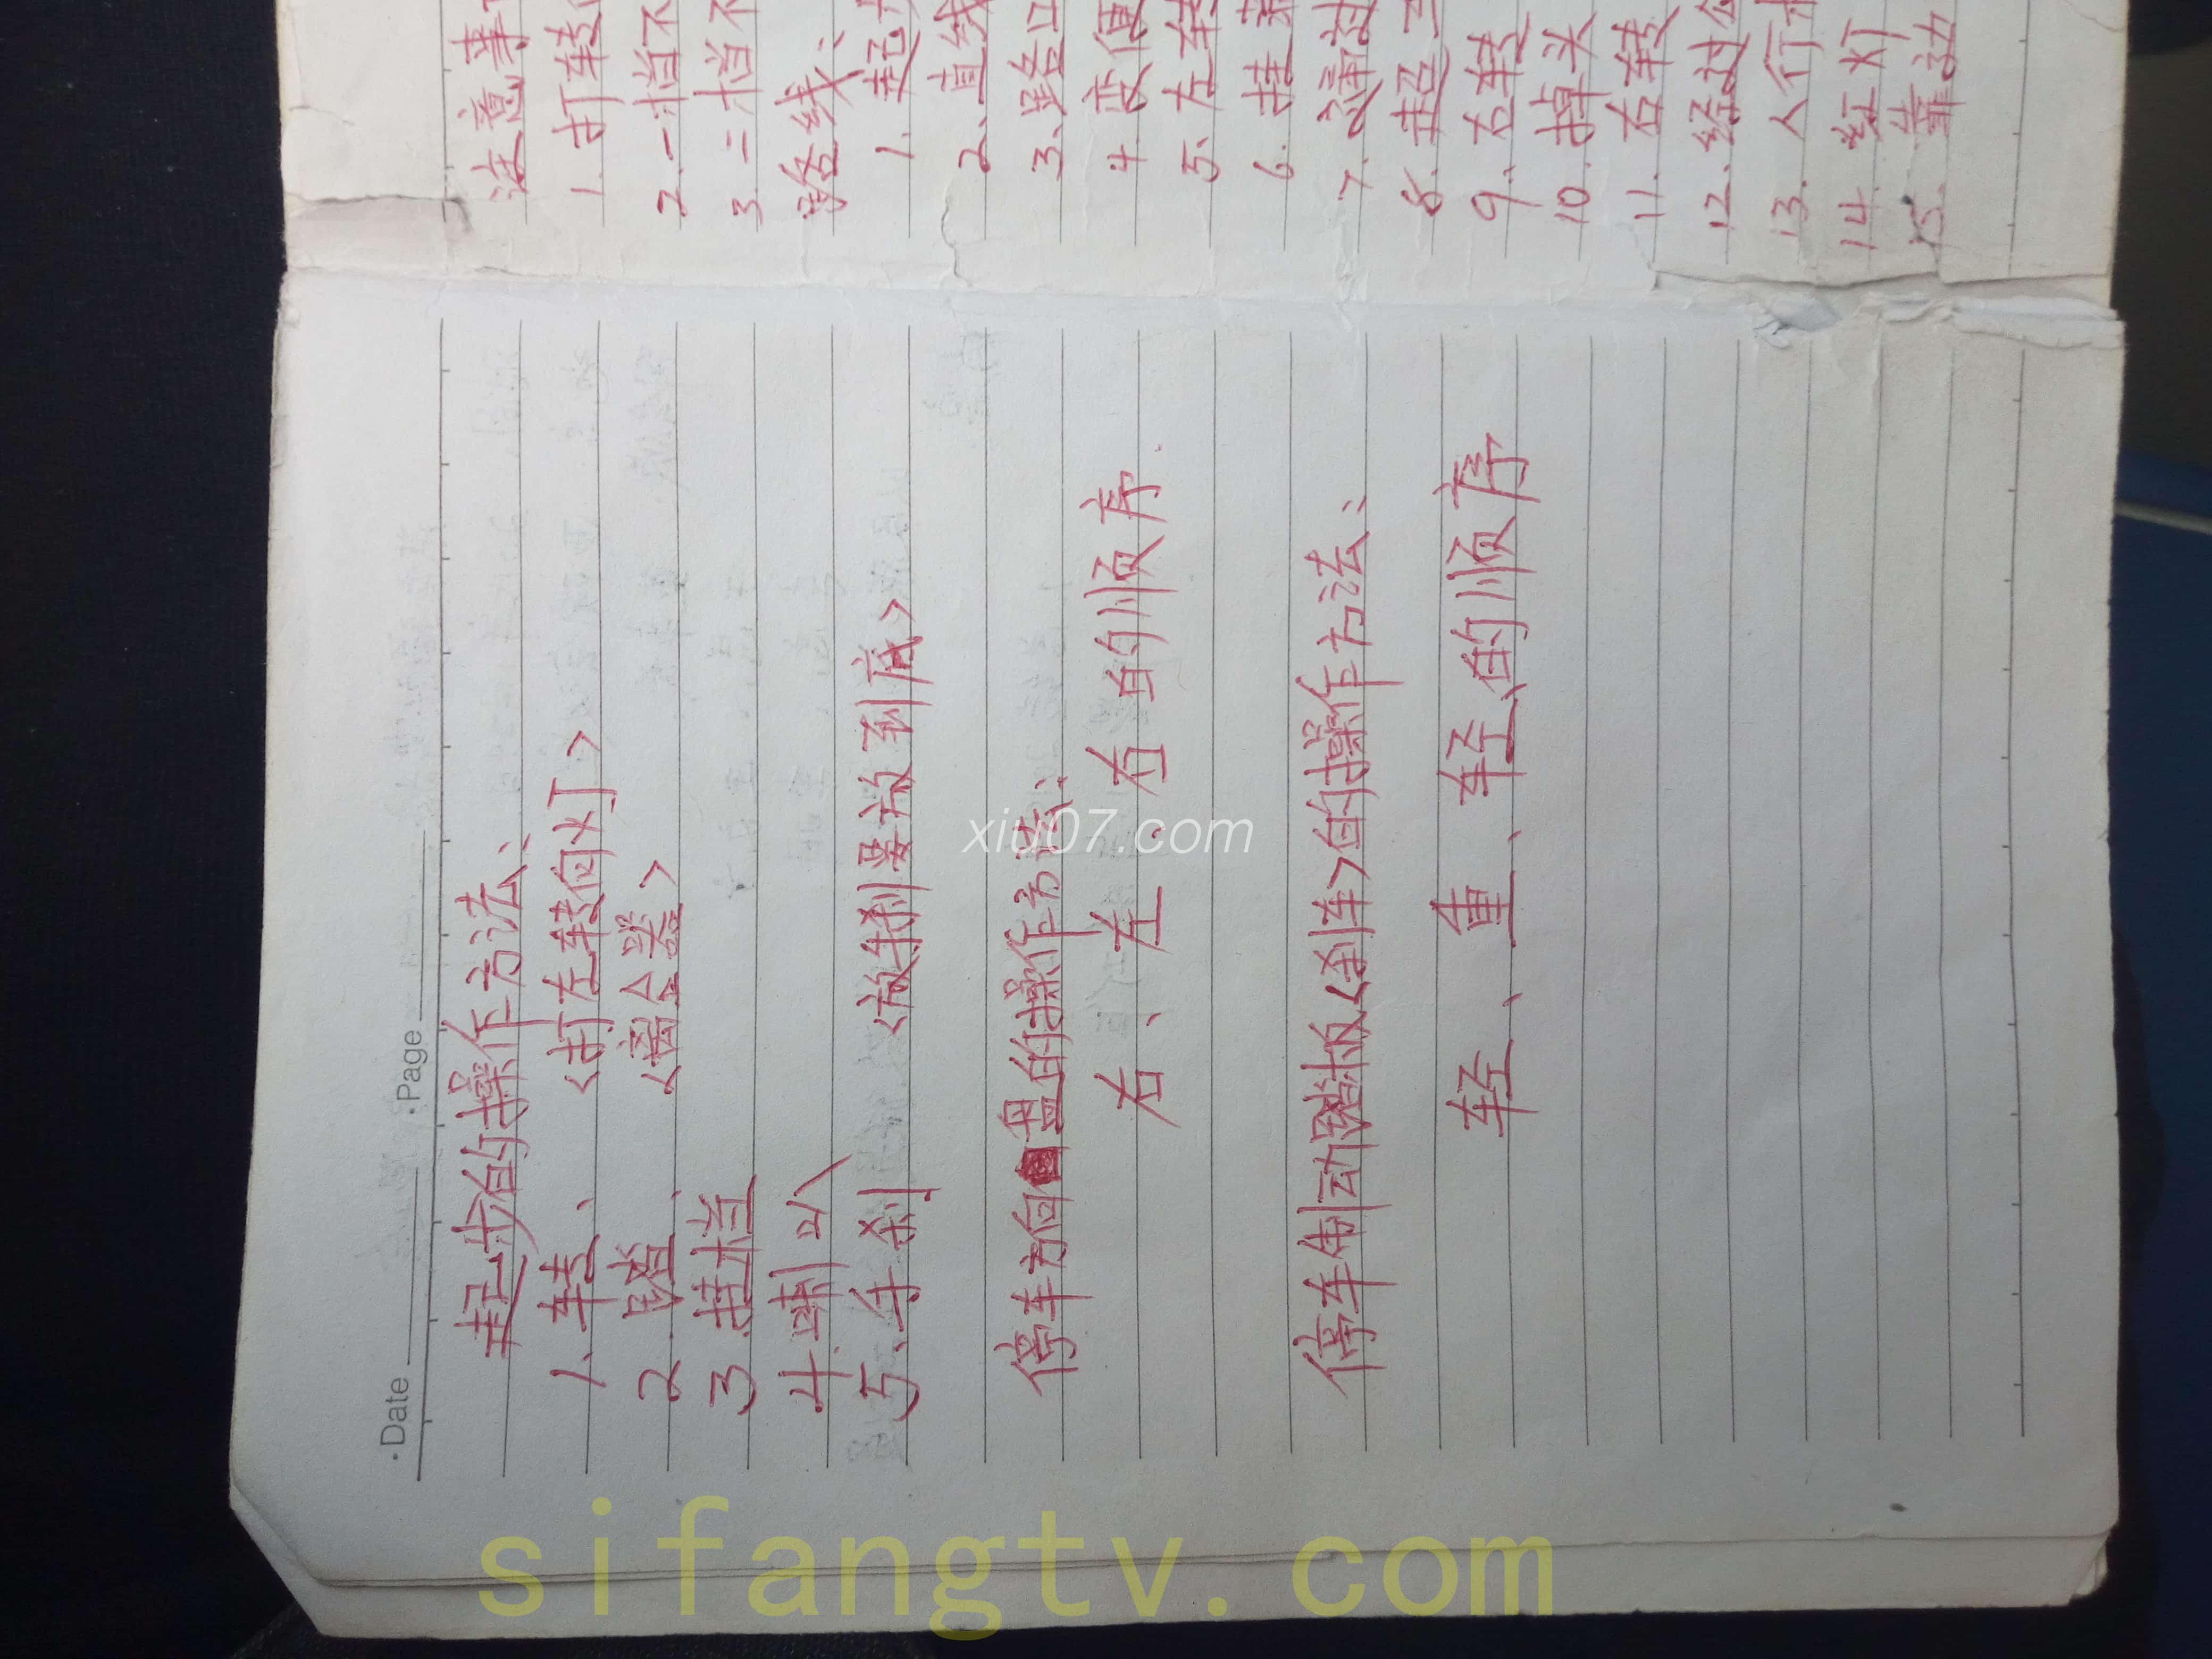 Date Page
起步的操作方法:
1、转、 <打左转向灯>
2 踏、 <离合器>
3 挂档
4 喇叭
5、手刹 <放手刹要放到底>
停车方向盘的操作方法:
右、左、右的顺序.
停车制动踏板<刹车>的操作方法:
轻、重、轻、的顺序
注意事
1. 打转
2. 一档不
3. 二档不
路线:
1. 起
2. 直线
3. 路口
4 变
5. 左转
6. 挂
7.
8. 起
9. 右转
10. 掉头
11. 右转
12. 经过
13. 人行
14. 红灯
15. 靠边
xiu07.com
sifangtv.com